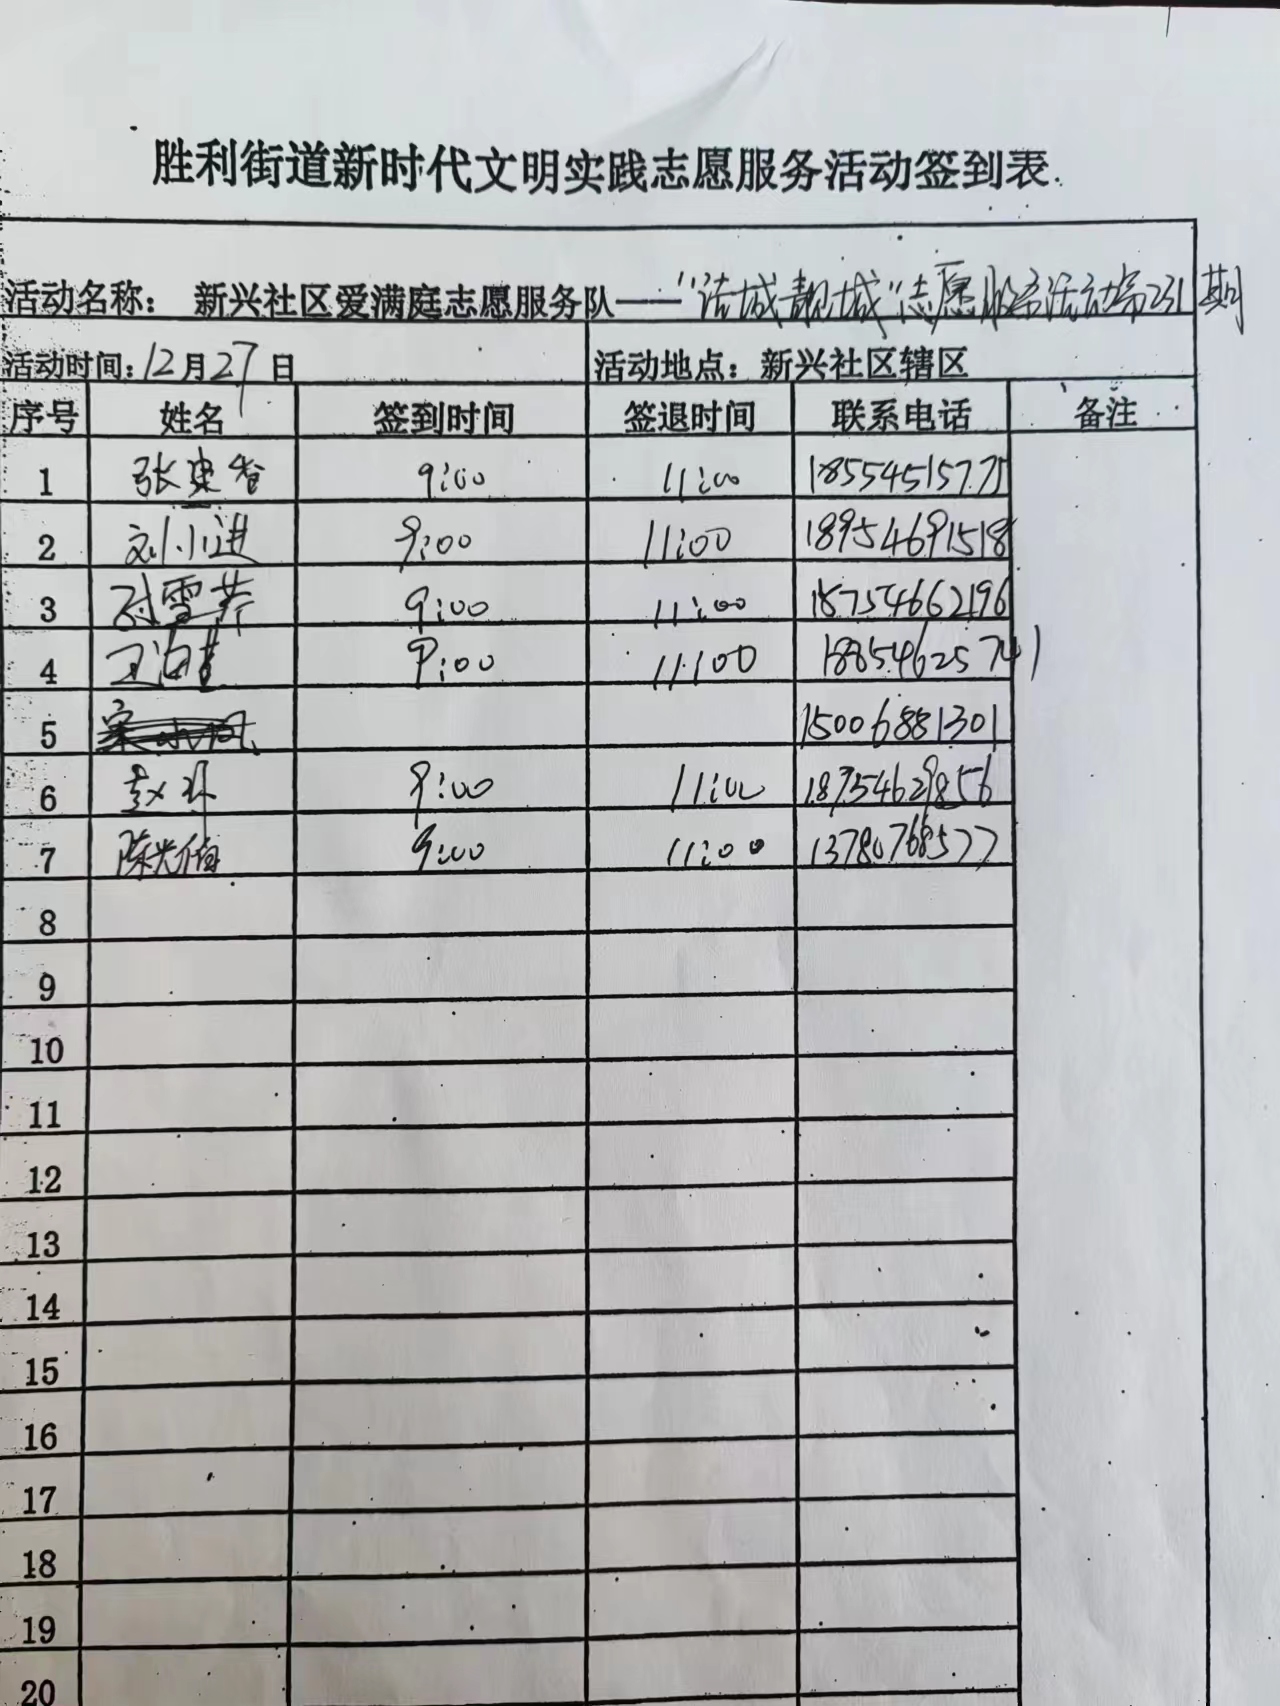 胜利街道新时代文明实践志愿服务活动签到表
活动名称：新兴社区爱满庭志愿服务队——“洁城靓城”志愿服务活动第231期
活动时间：12月27日 活动地点：新兴社区辖区
序号 姓名 签到时间 签退时间 联系电话 备注
1 张 香 9:00 11:00 18554515775
2 刘小进 9:00 11:00 18954691518
3 雪芹 9:00 11:00 18754662196
4 王 9:00 11:00 18854625741
5 15006881301
6 赵 9:00 11:00 18754629856
7 陈光 9:00 11:00 13780768577
8
9
10
11
12
13
14
15
16
17
18
19
20